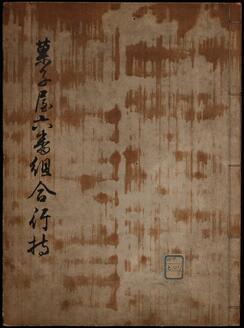 菓子屋六番組合行持